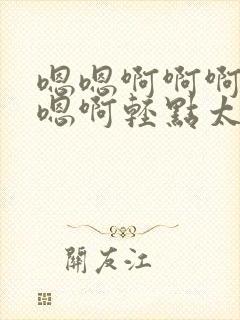 嗯嗯啊啊啊
嗯啊輕點太
關友江